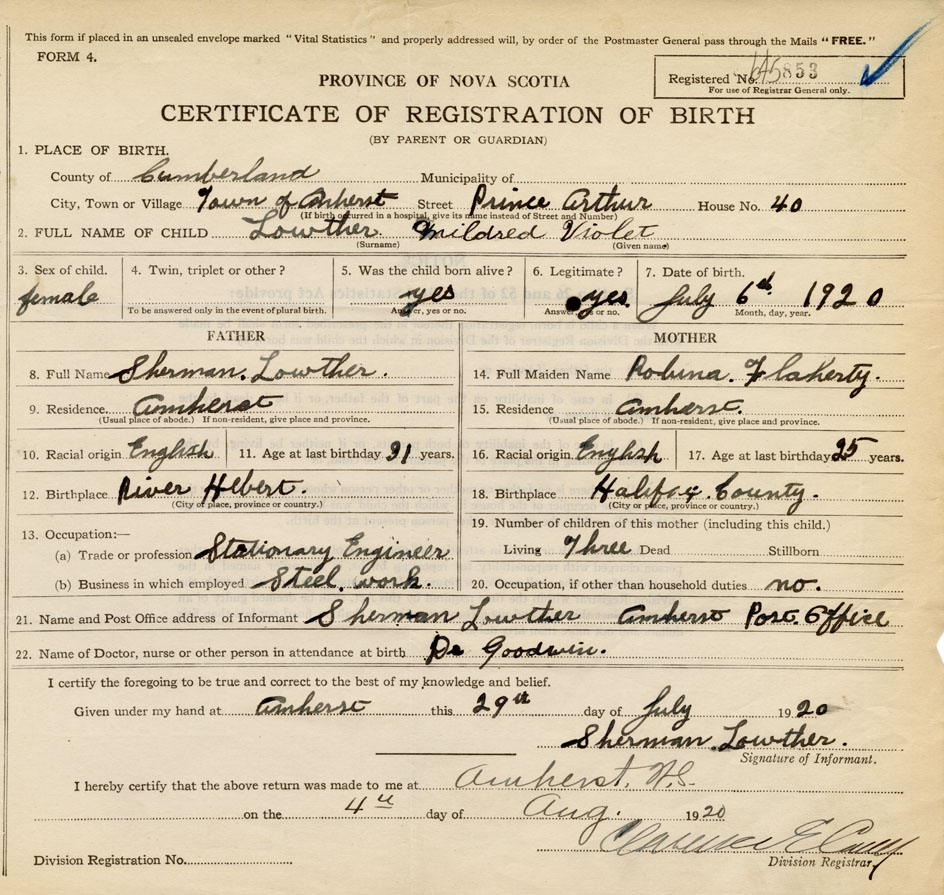 This form if placed in an unsealed envelope marked "Vital Statistics" and properly addressed will, by order of the Postmaster General pass through the Mails "FREE."
FORM 4.
Registered No. 5853
For use of Registrar General only.
PROVINCE OF NOVA SCOTIA
CERTIFICATE OF REGISTRATION OF BIRTH
(BY PARENT OR GUARDIAN)
1. PLACE OF BIRTH.
County of Cumberland Municipality of
City, Town or Village Town of Amherst Street Prince Arthur House No. 40
(If birth occurred in a hospital, give its name instead of Street and Number)
2. FULL NAME OF CHILD Lowther Mildred Violet
(Surname) (Given name)
3. Sex of child. 4. Twin, triplet or other? 5. Was the child born alive? 6. Legitimate? 7. Date of birth.
female yes yes July 6th 1920
To be answered only in the event of plural birth. Answer, yes or no. Answer, yes or no. Month, day, year.
FATHER MOTHER
8. Full Name Sherman. Lowther. 14. Full Maiden Name Robina. Flaherty.
9. Residence. Amherst 15. Residence Amherst.
(Usual place of abode.) If non-resident, give place and province. (Usual place of abode.) If non-resident, give place and province.
10. Racial origin English 11. Age at last birthday 31 years. 16. Racial origin English 17. Age at last birthday 25 years.
12. Birthplace River Hebert. 18. Birthplace Halifax County.
(City or place, province or country.) (City or place, province or country.)
13. Occupation:— 19. Number of children of this mother (including this child.)
(a) Trade or profession Stationary Engineer Living Three Dead Stillborn
(b) Business in which employed Steel work. 20. Occupation, if other than household duties no.
21. Name and Post Office address of Informant Sherman Lowther Amherst Post. Office
22. Name of Doctor, nurse or other person in attendance at birth Dr Goodwin.
I certify the foregoing to be true and correct to the best of my knowledge and belief.
Given under my hand at Amherst this 29th day of July 1920
Sherman. Lowther.
Signature of Informant.
I hereby certify that the above return was made to me at Amherst, N.S.
on the 4th day of Aug. 1920
Clarence E
Division Registration No. Division Registrar